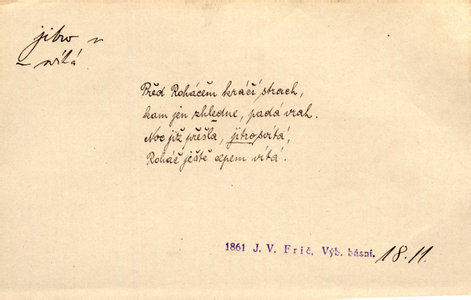 jitro v
– svítá
Před Roháčem kráčí strach,
kam jen zhledne, padá vrah.
Noc již přešla, jitro svítá,
Roháč ještě depem vítá.
1861 J. V. Frič, Výb. básní.
18.11.